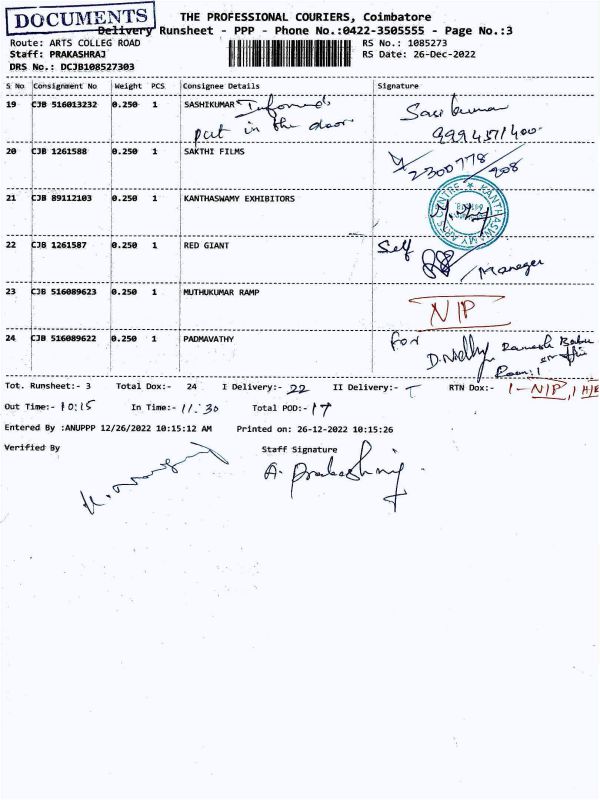 DOCUMENTS
THE PROFESSIONAL COURIERS, Coimbatore
Delivery Runsheet - PPP - Phone No.:0422-3505555 - Page No.:3
Route: ARTS COLLEG ROAD RS No.: 1085273
Staff: PRAKASHRAJ RS Date: 26-Dec-2022
DRS No.: DCJB108527303
S No Consignment No Weight PCS Consignee Details Signature
19 CJB 516013232 0.250 1 SASHIKUMAR Informed
put in the door
20 CJB 1261588 0.250 1 SAKTHI FILMS
2300778
908
21 CJB 89112103 0.250 1 KANTHASWAMY EXHIBITORS
KANTHASWAMY ARTS CENTRE
22 CJB 1261587 0.250 1 RED GIANT Self
Manager
23 CJB 516089623 0.250 1 MUTHUKUMAR RAMP N/P
24 CJB 516089622 0.250 1 PADMAVATHY For
Ramesh Babu
Tot. Runsheet:- 3 Total Dox:- 24 I Delivery:- 22 II Delivery:- RTN Dox:- 1-N/P,
Out Time:- 10:15 In Time:- 11:30 Total POD:- 17
Entered By :ANUPPP 12/26/2022 10:15:12 AM Printed on: 26-12-2022 10:15:26
Verified By Staff Signature
A. Prakashraj